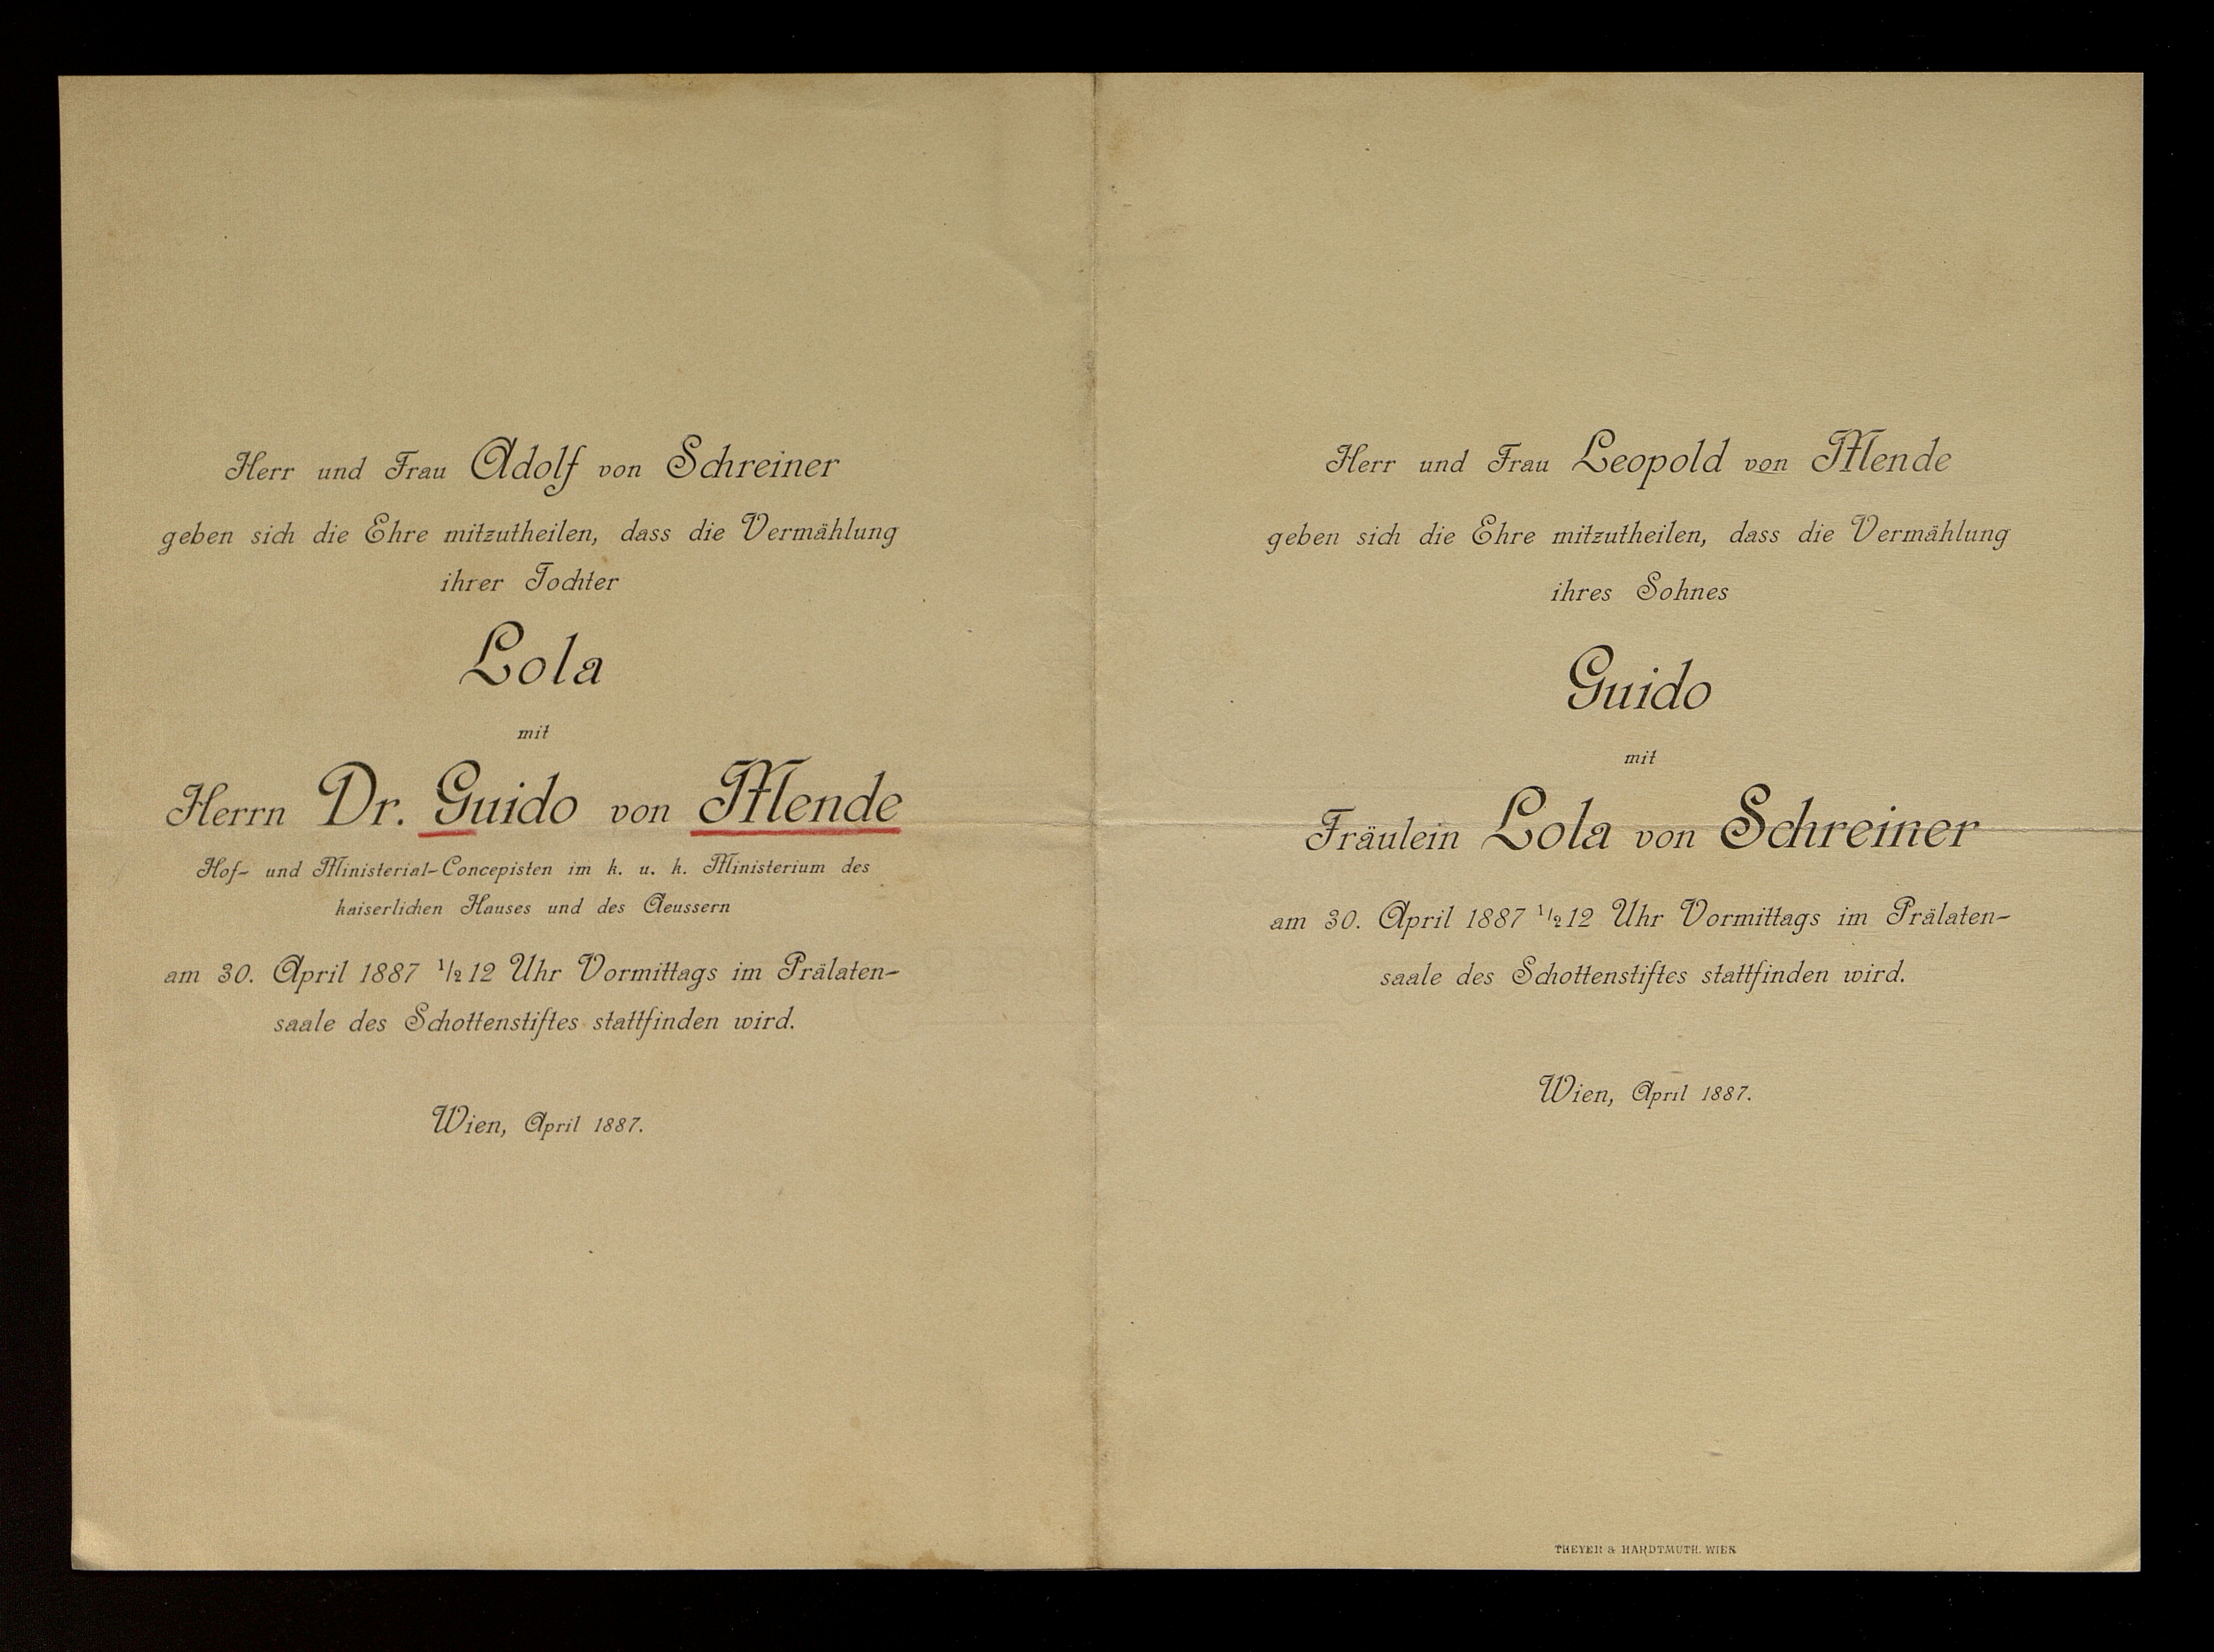 Herr und Frau Adolf von Schreiner
geben sich die Ehre mitzutheilen, dass die Vermählung
ihrer Tochter
Lola
mit
Herrn Dr. Guido von Mende
Hof- und Ministerial-Concepisten im k. u. k. Ministerium des
kaiserlichen Hauses und des Aeussern
am 30. April 1887 1/2 12 Uhr Vormittags im Prälaten-
saale des Schottenstiftes stattfinden wird.
Wien, April 1887.
Herr und Frau Leopold von Mende
geben sich die Ehre mitzutheilen, dass die Vermählung
ihres Sohnes
Guido
mit
Fräulein Lola von Schreiner
am 30. April 1887 1/2 12 Uhr Vormittags im Prälaten-
saale des Schottenstiftes stattfinden wird.
Wien, April 1887.
THEYER & HARDTMUTH. WIEN